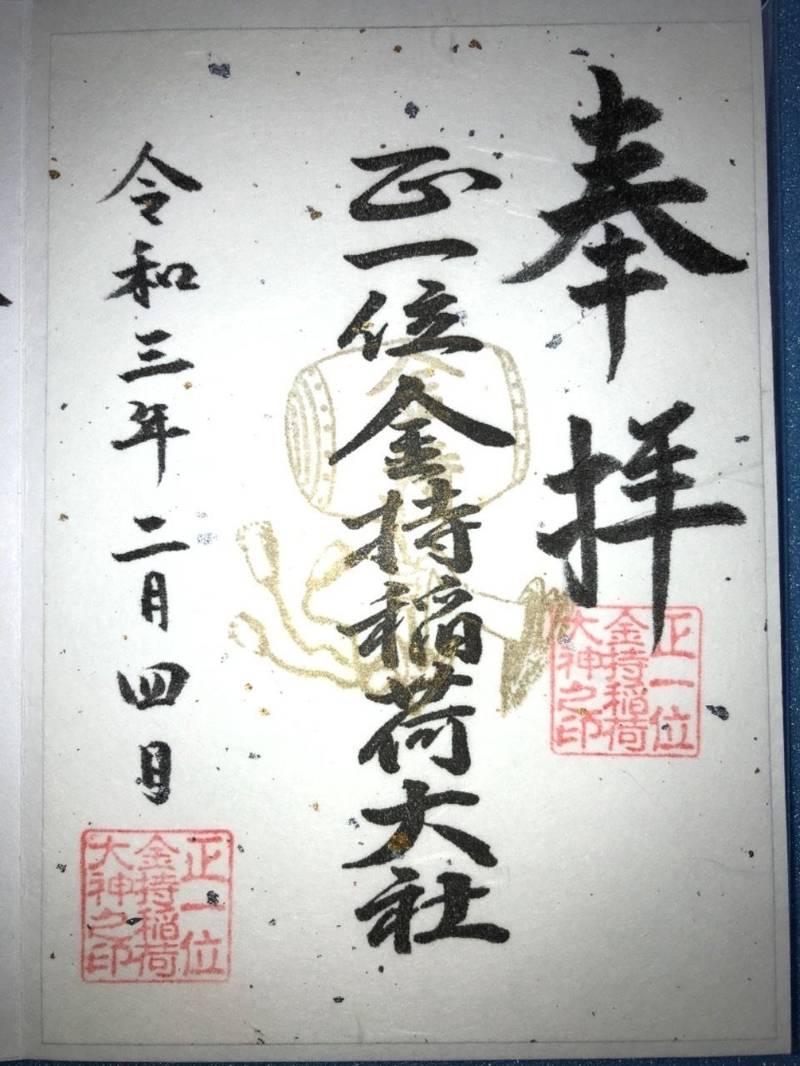 奉拝
正一位金持稲荷大社
令和三年二月四日
正一位
金持稲荷
大神之印
正一位
金持稲荷
大神之印